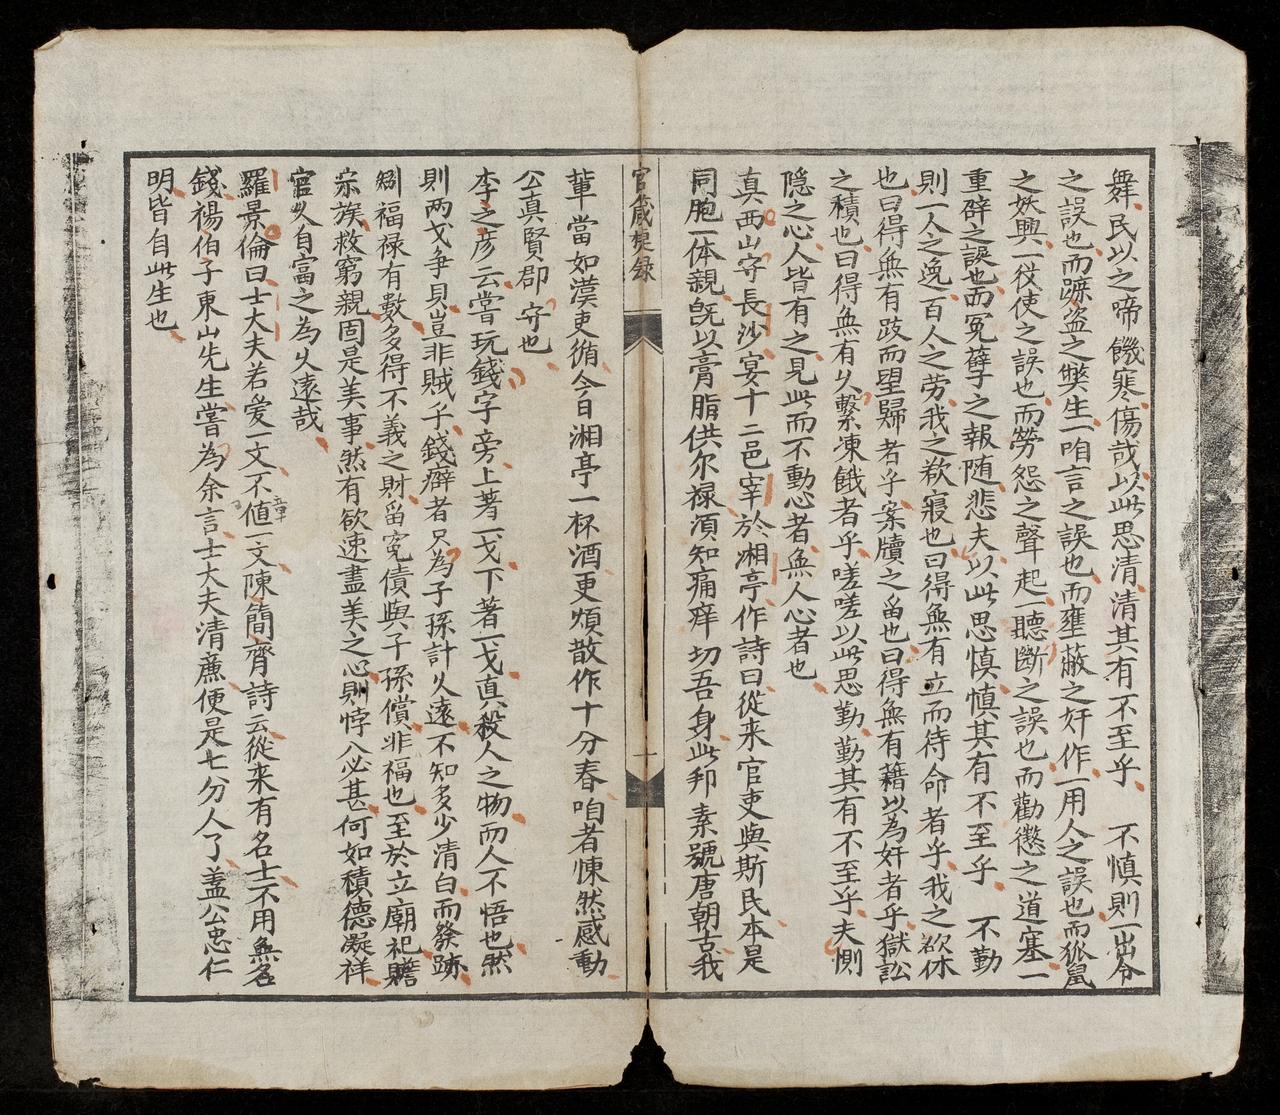 舞民以之啼饑寒傷哉以此思清清其有不至乎 不慎則一出令
之誤也而蹠盜之獘生一咱言之誤也而壅蔽之奸作一用人之誤也而狐鼠
之妖興一役使之誤也而勞怨之聲起一聽斷之誤也而勸懲之道塞一
重辟之誤也而冤孽之報随悲夫以此思慎慎其有不至乎 不勤
則一人之逸百人之劳我之欲寢也曰得無有立而待命者乎我之欲休
也曰得無有跂而望歸者乎案牘之畄也曰得無有藉以為奸者乎獄訟
之積也曰得無有久繫凍餓者乎嗟嗟以此思勤勤其有不至乎夫惻
隐之心人皆有之見此而不動心者無人心者也
真西山守長沙宴十二邑宰於湘亭作詩曰從来官吏與斯民本是
同胞一体親既以膏脂供尔禄湏知痛痒切吾身此邦素號唐朝古我
官箴集録
一
輩當如漢吏循今日湘亭一杯酒更煩散作十分春咱者悚然感動
公真賢郡守也
李之彦云嘗玩錢字旁上著一戈下著一戈真殺人之物而人不悟也然
則两戈争貝豈非賊乎錢癖者只為子孫計久遠不知多少清白而發跡
矧福禄有數多得不義之財畄寃債與子孫償非福也至於立廟祀贍
宗族救窮親固是美事然有欲速盡美之心則悖入必甚何如積德凝祥
官久自富之為久遠哉
羅景倫曰士大夫若愛一文不値一文陳簡齊詩云從来有名士不用無名
錢楊伯子東山先生嘗為余言士大夫清廉便是七分人了盖公忠仁
明皆自此生也